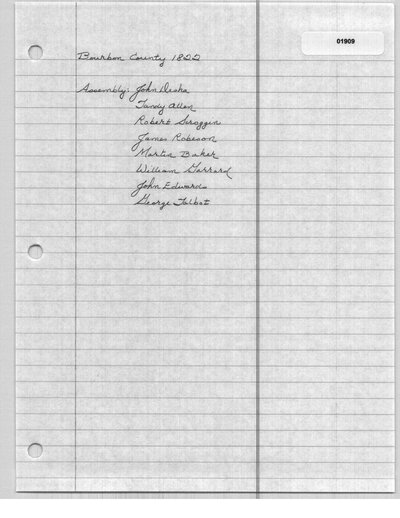 01909
Bourbon County 1822
Assembly: John Desha
Tandy Allen
Robert Scroggin
James Robeson
Martin Baker
William Garrard
John Edwards
George Talbot